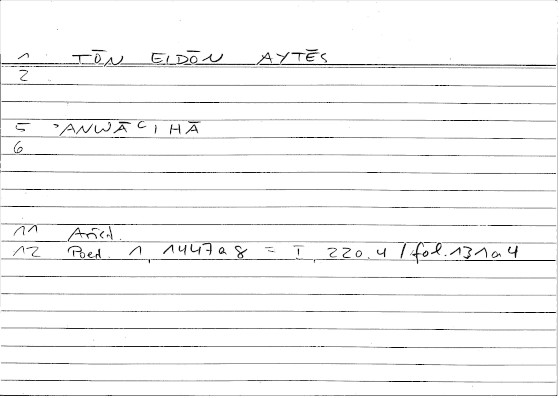 1 TŌN EIDŌN AYTĒS
2
5 ʾANWĀʿIHĀ
6
11 Arist.
12 Poet. 1, 1447a8 = I, 220.4 / fol. 131a4